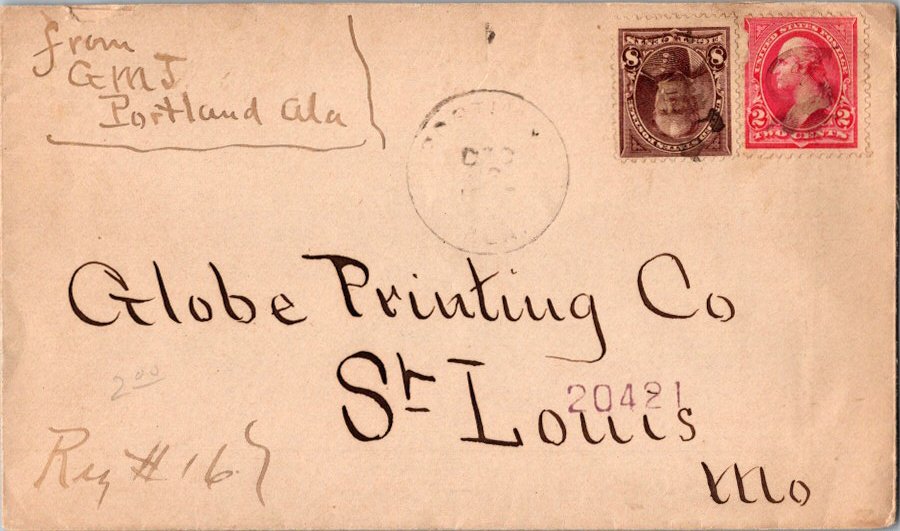 from
GMJ
Portland Ala
DEC
ALA.
8
8
UNITED STATES POSTAGE
2
2
TWO CENTS
Globe Printing Co
St. Louis
20421
Mo
2.00
Reg # 167